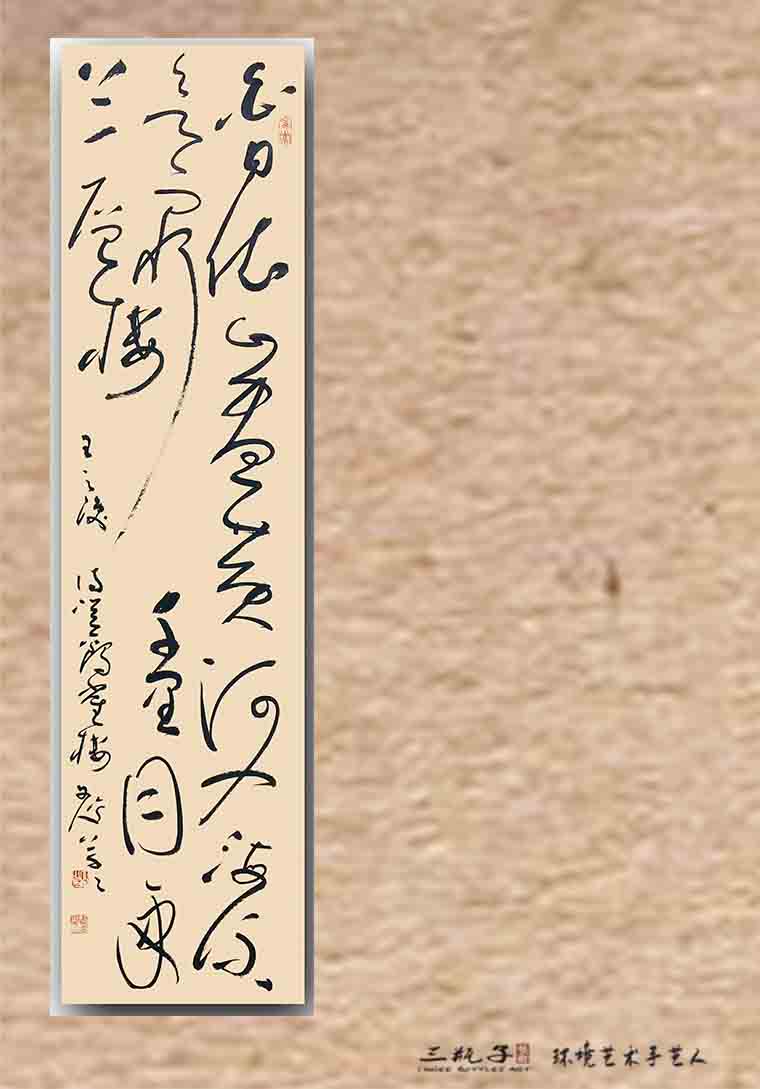 白日依山盡黄河入海流
欲窮千里目更
上一層樓 王之渙 詩登鸛雀樓
三瓶子 环境艺术手艺人
THREE BOTTLES ART